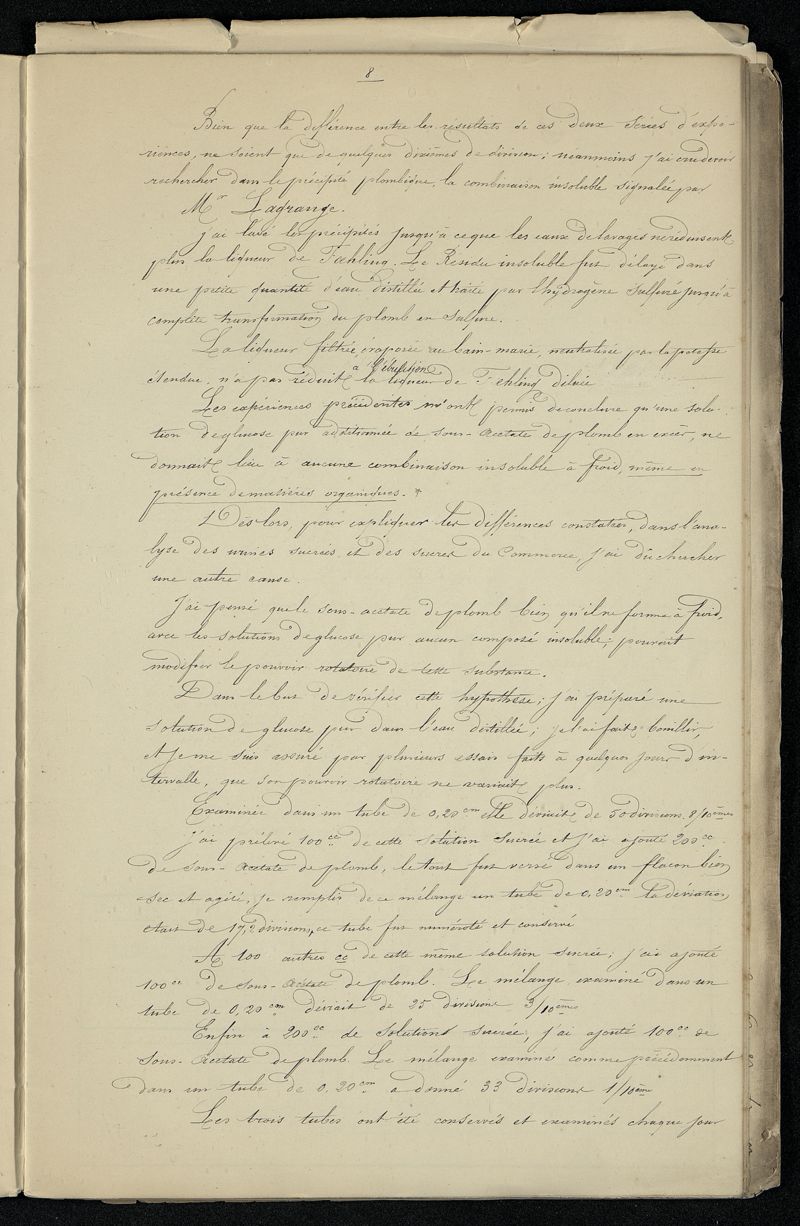 8
Bien que la différence entre les résultats de ces deux séries d'expé-
riences, ne soient que de quelques dixièmes de division; néanmoins j'ai cru devoir
rechercher dans le précipité plombique, la combinaison insoluble signalée par
Mr Lagrange.
j'ai lavé les précipités jusqu'à ce que les eaux de lavages ne réduisent
plus la liqueur de Fehling. Le Résidu insoluble fut délayé dans
une petite quantité d'eau distillée et traité par l'hydrogène sulfuré jusqu'à
complète transformation du plomb en sulfure.
La liqueur filtrée, évaporée au bain-marie, neutralisée par la potasse
à l'ébullition
étendue, n'a pas réduit la liqueur de Fehling diluée
Les expériences précédentes m'ont permis de conclure qu'une solu-
tion de glucose pur additionnée de sous-acétate de plomb en excès, ne
donnait lieu à aucune combinaison insoluble à froid, même en
présence de matières organiques. *
Dès lors, pour expliquer les différences constatées, dans l'ana-
lyse des urines sucrées et des sucres du Commerce, j'ai dû chercher
une autre cause.
J'ai pensé que le sous-acétate de plomb bien qu'il ne forme à froid,
avec les solutions de glucose pur aucun composé insoluble; pouvait
modifier le pouvoir rotatoire de cette substance.
Dans le but de vérifier cette hypothèse; j'ai préparé une
solution de glucose pur dans l'eau distillée; je l'ai faite bouillir,
et je me suis assuré par plusieurs essais faits à quelques jours d'in-
tervalle, que son pouvoir rotatoire ne variait plus.
Examinée dans un tube de 0,20 cm elle déviait de 50 divisions 8/10èmes
j'ai prélevé 100 cc de cette solution sucrée et j'ai ajouté 200 cc
de sous-acétate de plomb, le tout fut versé dans un flacon bien
sec et agité, je remplis de ce mélange un tube de 0,20 cm la déviation
était de 17,2 divisions, ce tube fut numéroté et conservé
A 100 autres cc de cette même solution sucrée; j'ai ajouté
100 cc de sous-acétate de plomb. Le mélange examiné dans un
tube de 0,20 cm déviait de 25 divisions 3/10èmes
Enfin à 200 cc de solution sucrée, j'ai ajouté 100 cc de
sous-acétate de plomb. Le mélange examiné comme précédemment
dans un tube de 0,20 cm a donné 33 divisions 1/10ème
Les trois tubes ont été conservés et examinés chaque jour